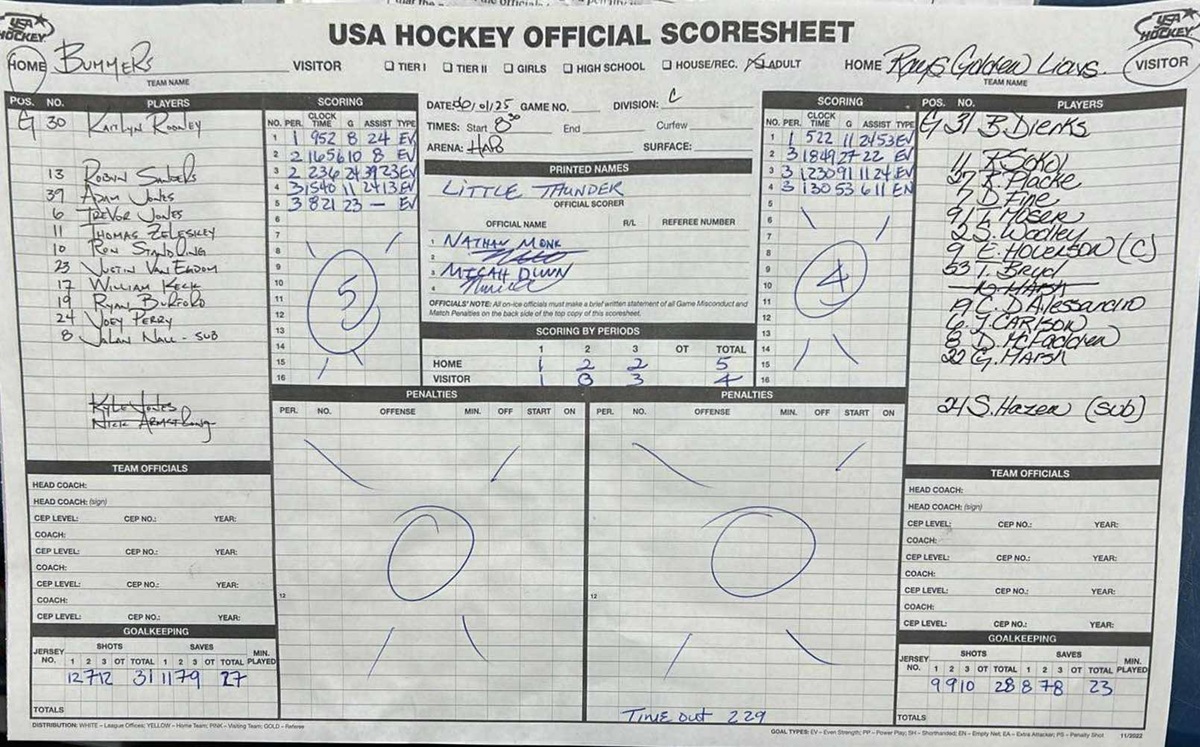 USA HOCKEY OFFICIAL SCORESHEET
USA HOCKEY
USA HOCKEY
HOME BUMMERS VISITOR
TEAM NAME
☐ TIER I ☐ TIER II ☐ GIRLS ☐ HIGH SCHOOL ☐ HOUSE/REC. ☒ ADULT
HOME Rays Golden Lions VISITOR
TEAM NAME
POS. NO. PLAYERS
G 30 KAITLYN ROONEY
13 ROBYN SANDERS
39 ADAM JONES
6 TREVOR JONES
11 THOMAS ZELESKEY
10 RON STANDLING
23 JUSTIN VAN EGDOM
17 WILLIAM KECK
19 RYAN BURFORD
24 JOEY PERRY
8 NALL - SUB
KYLE JONES
NICK ARMSTRONG
SCORING
NO. PER. CLOCK TIME G ASSIST TYPE
1 1 952 8 24 EV
2 2 1656 10 8 EV
3 2 236 24 3923 EV
4 3 1540 11 2413 EV
5 3 821 23 — EV
6
7
8
9
10
11
12
13
14
15
16
5
DATE: /01/25 GAME NO. DIVISION: C
TIMES: Start 8:30 End Curfew
ARENA: SURFACE:
PRINTED NAMES
LITTLE THUNDER
OFFICIAL SCORER
OFFICIAL NAME R/L REFEREE NUMBER
1 NATHAN MONK
2
3 MICAH DUNN
4
OFFICIALS' NOTE: All on-ice officials must make a brief written statement of all Game Misconduct and
Match Penalties on the back side of the top copy of this scoresheet.
SCORING BY PERIODS
1 2 3 OT TOTAL
HOME 1 2 2 5
VISITOR 1 0 3 4
SCORING
NO. PER. CLOCK TIME G ASSIST TYPE
1 1 522 11 2453 EV
2 3 1849 27 22 EV
3 3 1230 91 11 24 EV
4 3 130 53 6 11 EN
5
6
7
8
9
10
11
12
13
14
15
16
4
POS. NO. PLAYERS
G 31 B. Dienks
11 R. Sokol
27 R. Placke
7 D. Fine
91 T. Moser
2 S. Woolley
9 E. HOLERSON (C)
53 T. Bryd
19 C. D'Alessandro
6 J. CARLSON
8 D. McFadden
22 G. Marsh
24 S. Hazen (sub)
PENALTIES
PER. NO. OFFENSE MIN. OFF START ON
12
0
PENALTIES
PER. NO. OFFENSE MIN. OFF START ON
12
0
Time out 229
TEAM OFFICIALS
HEAD COACH:
HEAD COACH: (sign)
CEP LEVEL: CEP NO.: YEAR:
COACH:
CEP LEVEL: CEP NO.: YEAR:
COACH:
CEP LEVEL: CEP NO.: YEAR:
COACH:
CEP LEVEL: CEP NO.: YEAR:
GOALKEEPING
JERSEY NO. SHOTS SAVES MIN. PLAYED
1 2 3 OT TOTAL 1 2 3 OT TOTAL
12 7 12 31 11 7 9 27
TOTALS
TEAM OFFICIALS
HEAD COACH:
HEAD COACH: (sign)
CEP LEVEL: CEP NO.: YEAR:
COACH:
CEP LEVEL: CEP NO.: YEAR:
COACH:
CEP LEVEL: CEP NO.: YEAR:
COACH:
CEP LEVEL: CEP NO.: YEAR:
GOALKEEPING
JERSEY NO. SHOTS SAVES MIN. PLAYED
1 2 3 OT TOTAL 1 2 3 OT TOTAL
9 9 10 28 8 7 8 23
TOTALS
DISTRIBUTION: WHITE – League Offices; YELLOW – Home Team; PINK – Visiting Team; GOLD – Referee
GOAL TYPES: EV – Even Strength; PP – Power Play; SH – Shorthanded; EN – Empty Net; EA – Extra Attacker; PS – Penalty Shot 11/2022